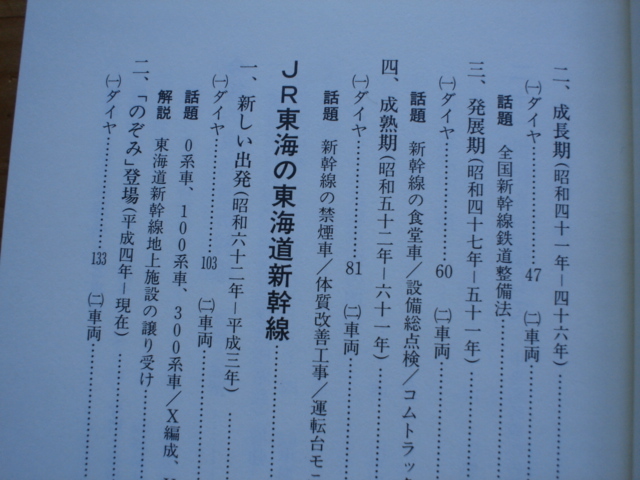 二、成長期(昭和四十一年−四十六年)…………
㈠ダイヤ…………………47 ㈡車両…………
話題 全国新幹線鉄道整備法…………
三、発展期(昭和四十七年−五十一年)…………
㈠ダイヤ…………………60 ㈡車両…………
話題 新幹線の食堂車/設備総点検/コムトラック
四、成熟期(昭和五十二年−六十一年)…………
㈠ダイヤ…………………81 ㈡車両…………
話題 新幹線の禁煙車/体質改善工事/運転台モニ
JR東海の東海道新幹線…………
一、新しい出発(昭和六十二年−平成三年)…………
㈠ダイヤ…………………103 ㈡車両…………
話題 0系車、100系車、300系車/X編成、
解説 東海道新幹線地上施設の譲り受け…………
二、「のぞみ」登場(平成四年−現在)…………
㈠ダイヤ…………………133 ㈡車両…………